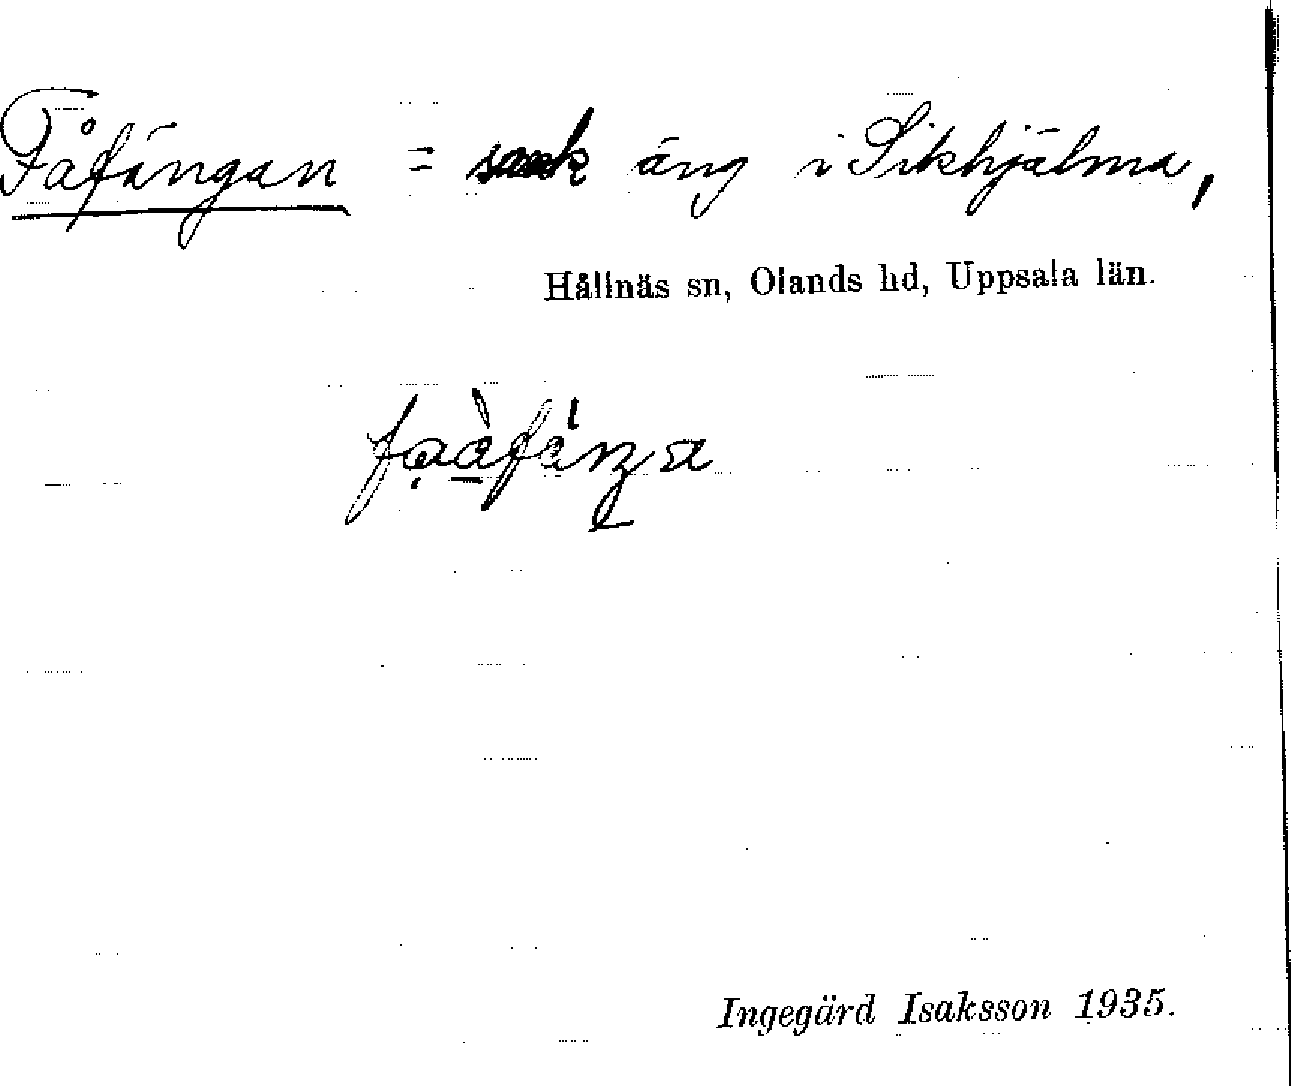 Fåfängan = äng i Sikhjälma,
Hållnäs sn, Olands hd, Uppsala län.
Ingegärd Isaksson 1935.